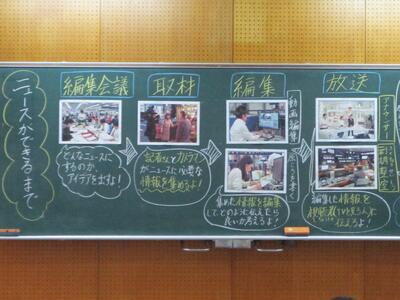 ニュースができるまで
編集会議
どんなニュースに
するのか、
アイデアを出すよ！
取材
記者さんとカメラマン
がニュースに必要な
情報を集めるよ！
編集
動画編集
集めた情報を編集
して、どのように伝えたら
良いか考えるよ！
放送
アナウンサー
副調整室
編集した情報を
伝えるよ！